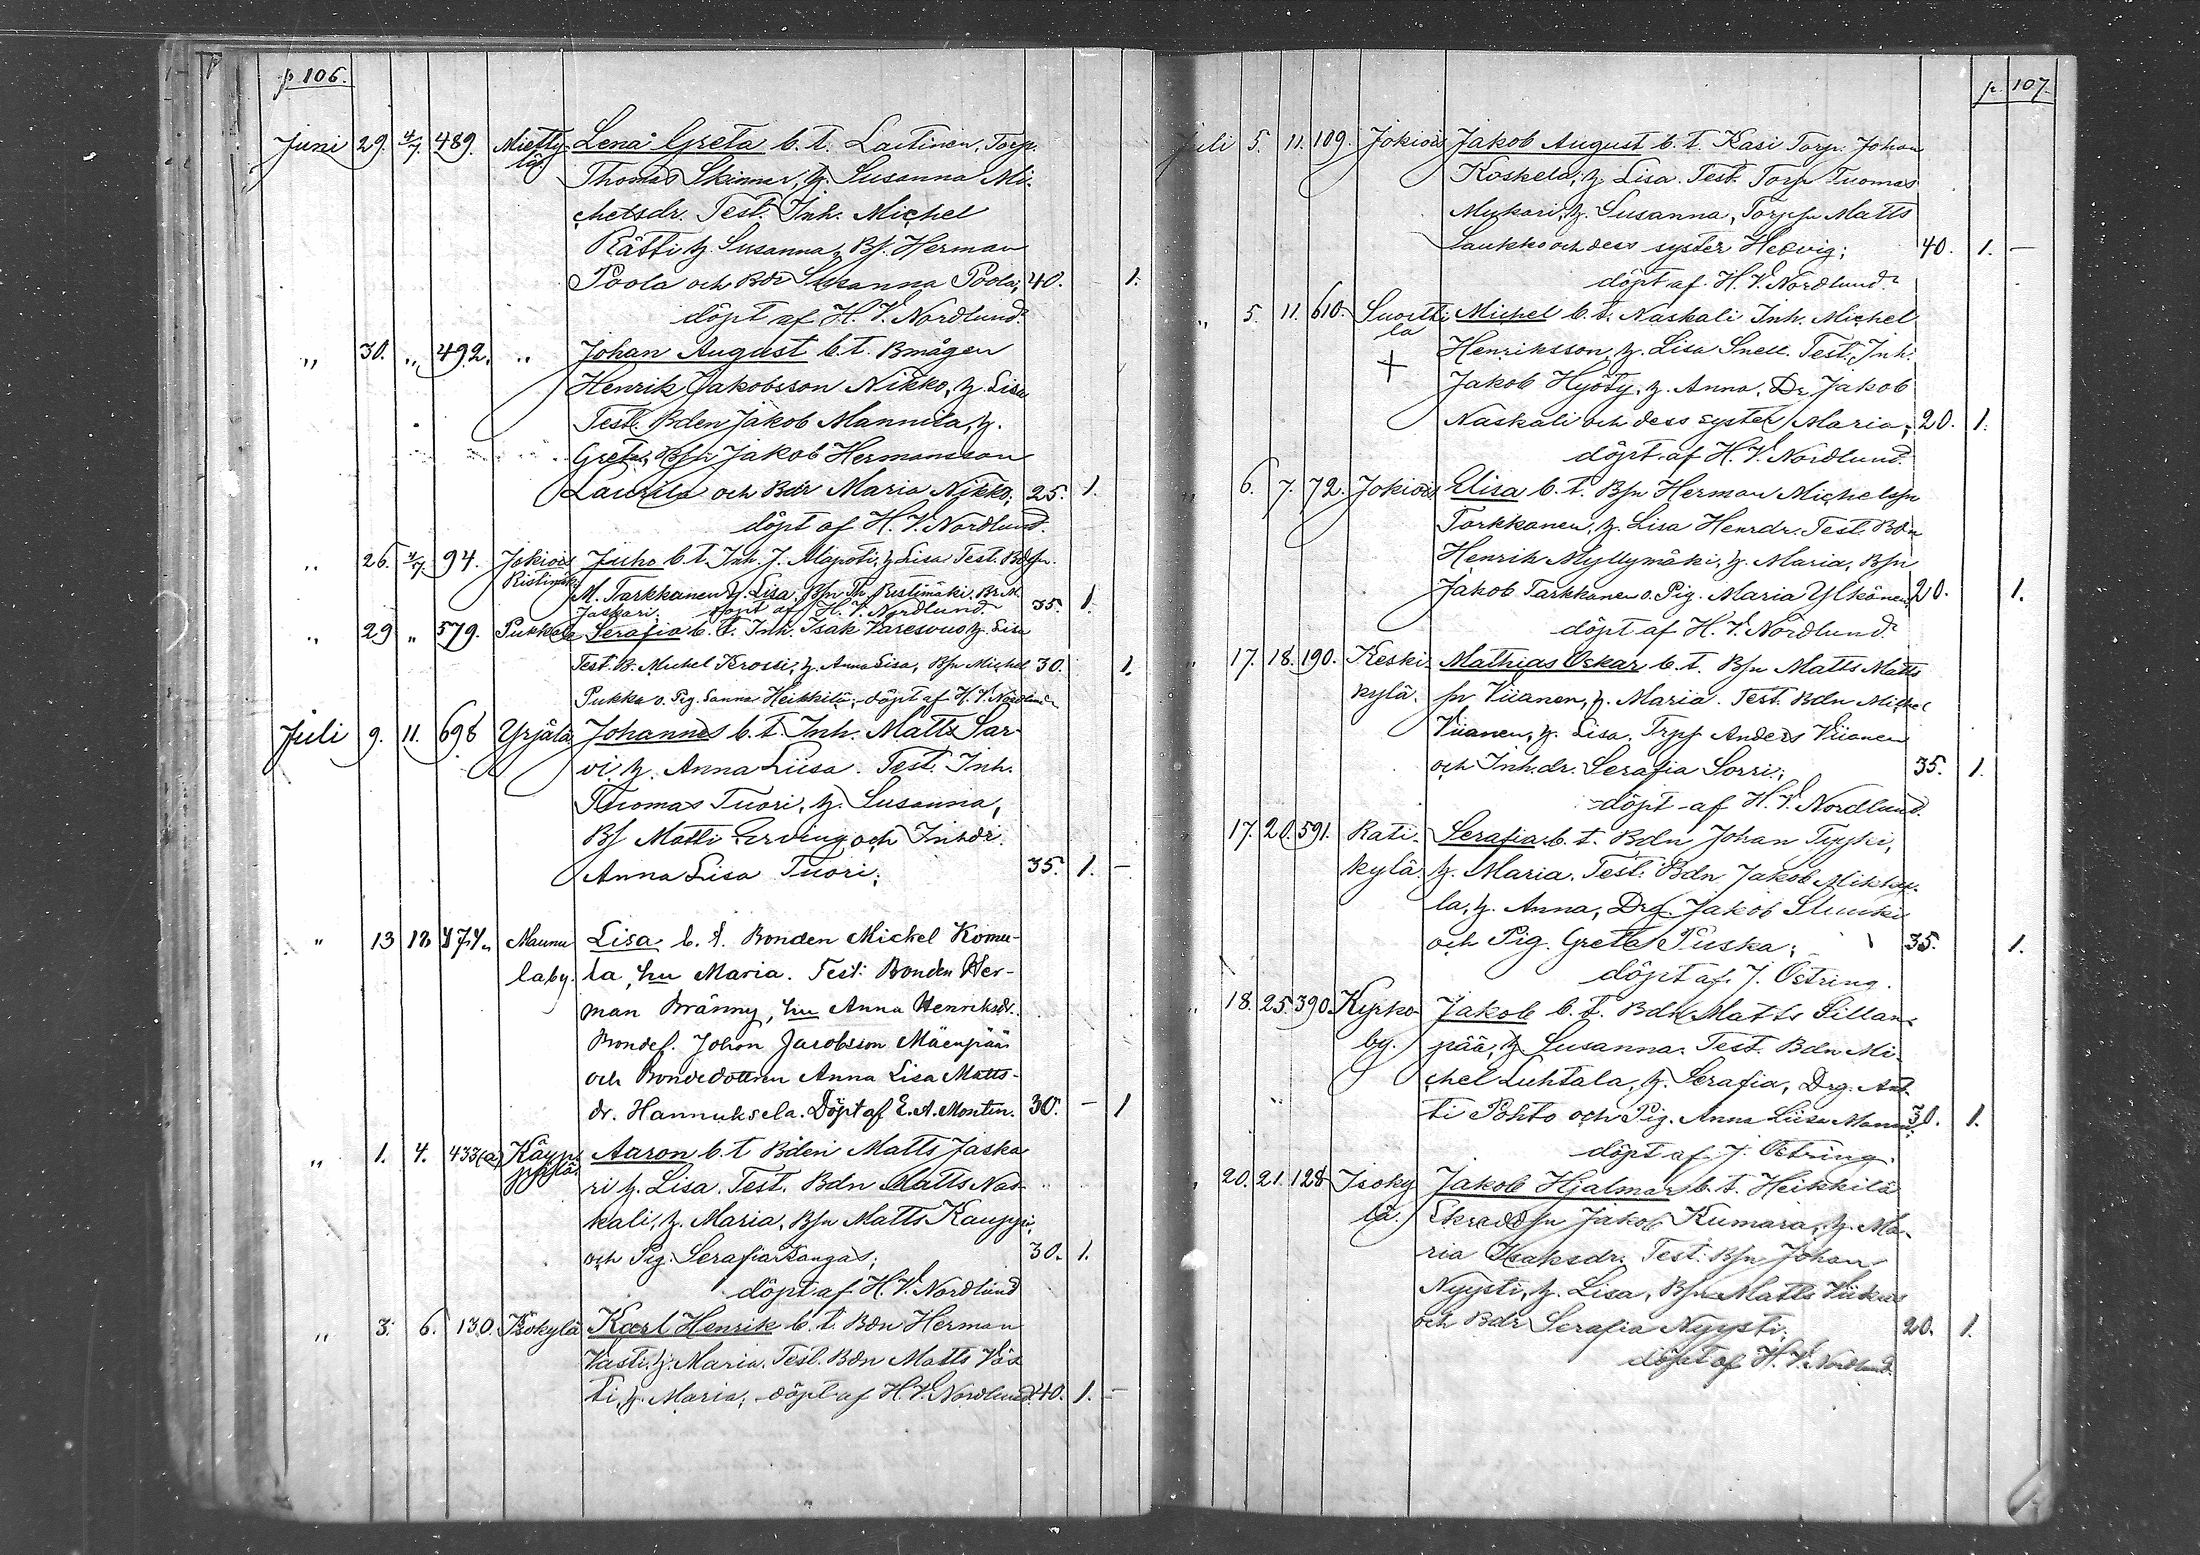 p 106.
Juni 29. 4/7. 489. Mietty Lena Greta b. t. Laitinen, Torp.
lä. Thomas Skinnar, h. Susanna Mi-
chelsdr. Test. Inh. Michel
Rätti h. Susanna, Bf. Herman
Poola och Bdr Susanna Poola; 40. 1.
döpt af H. V. Nordlund.
" 30. " 492. " Johan August b. t. Bmågen
Henrik Jakobsson Nikko, h. Lisa
Test. Bden Jakob Mannila, h.
Greta, Bfn Jakob Hermansson
Laurila och Bdr Maria Nikko; 25. 1.
döpt af H. V. Nordlund.
" 26. 4/7. 94. Jokiois Juho b. t. Inh. J. Mapoti, h Lisa Test. Bdfn.
Ristimäki M. Tarkkanen h. Lisa, Bfn Th. Ristimäki, Br. M.
Jaskari. döpt af H. V. Nordlund. 35. 1.
" 29 " 579. Pukkila Serafia b. t. Inh. Isak Varesvuo h. Lisa
Test. B. Michel Krossi, h. Anna Lisa, Bfn Michel 30. 1.
Pukka o. Pig. Sanna Heikkilä; döpt af H. V. Nordlund
Juli 9. 11. 698 Yrjälä Johannes b. t. Inh. Matts Sar-
vi h. Anna Liisa. Test. Inh.
Thomas Tuori, h. Susanna,
Bf Matti Erving och Inhdr.
Anna Lisa Tuori; 35. 1. —
" 13 18 474. Maunu Lisa b. t. Bonden Mickel Komu-
laby. la, hu Maria. Test: Bonden Her-
man Bränny, hu Anna Henriksdr.
Bondef. Johan Jacobsson Mäenpää
och Bondedottren Anna Lisa Matts-
dr. Hannuksela. Döpt af E. A. Monten. 30. — 1
" 1. 4. 433(a) Käyp- Aaron b. t Bden Matts Jaska
pylä. ri h. Lisa. Test. Bdn Matts Nas
kali, h. Maria, Bfn Matts Kauppi,
och Pig. Serafia Kangas; 30. 1.
döpt af H. V. Nordlund
" 3. 6. 130. Isokylä Karl Henrik b. t. Bdn Herman
Vasti. h. Maria. Test. Bdn Matts Väs
ti, h. Maria; döpt af H. V. Nordlund. 40. 1. —
p. 107.
Juli 5. 11. 109. Jokiois Jakob August b. t. Kasi Torp. Johan
Koskela, h Lisa. Test. Torp Tuomas
Mukari, h. Susanna, Torpfn Matts
Laukko och dess syster Hedvig; 40. 1. —
döpt af H. V. Nordlund.
" 5. 11. 610. Suostti Michel b. t. Naskali Inh. Michel
la Henriksson, h. Lisa Snell. Test. Inh.
+ Jakob Hyöty, h. Anna, Dr Jakob
Naskali och dess syster Maria; 20. 1.
döpt af H. V. Nordlund.
" 6. 7. 72. Jokiois Elisa b. t. Bfn Herman Michelsfn
Tarkkanen, h. Lisa Henrdr. Test. Bdn
Henrik Myllymäki, h. Maria, Bfn
Jakob Tarkkanen o. Pig. Maria Ylkänen; 20. 1.
döpt af H. V. Nordlund.
" 17. 18. 190. Keski- Mathias Oskar b. t. Bfn Matts Matts
kylä. fn Viianen, h. Maria. Test. Bdn Michel
Viianen, h. Lisa. Trpf Anders Viianen
och Inh.dr. Serafia Sorri; 35. 1.
döpt af H. V. Nordlund.
17. 20. 591. Rati- Serafia b. t. Bdn Johan Typpi,
kylä h. Maria. Test. Bdn Jakob Mikko-
la, h. Anna, Drg. Jakob
och Pig. Greta Puska; 35. 1.
döpt af J. Östring.
" 18. 25. 390. Kyrko- Jakob b. t. Bdn Matts Sillan-
by. pää, h Susanna. Test. Bdn Mi-
chel Luhtala, h. Serafia, Drg. Ant-
ti Pohto och Pig. Anna Liisa 30. 1.
döpt af J. Östring.
" 20. 21. 128 Isoky Jakob Hjalmar b. t. Heikkilä
lä. Skraddfn Jakob Kumara, h. Ma-
ria Isaksdr. Test. Bfn Johan
Nyysti, h. Lisa, Bfn Matts
och Bdr Serafia Nyysti; 20. 1.
döpt af H. V. Nordlund.